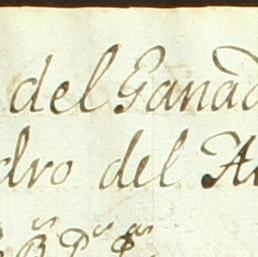 del Ganad
dro del A